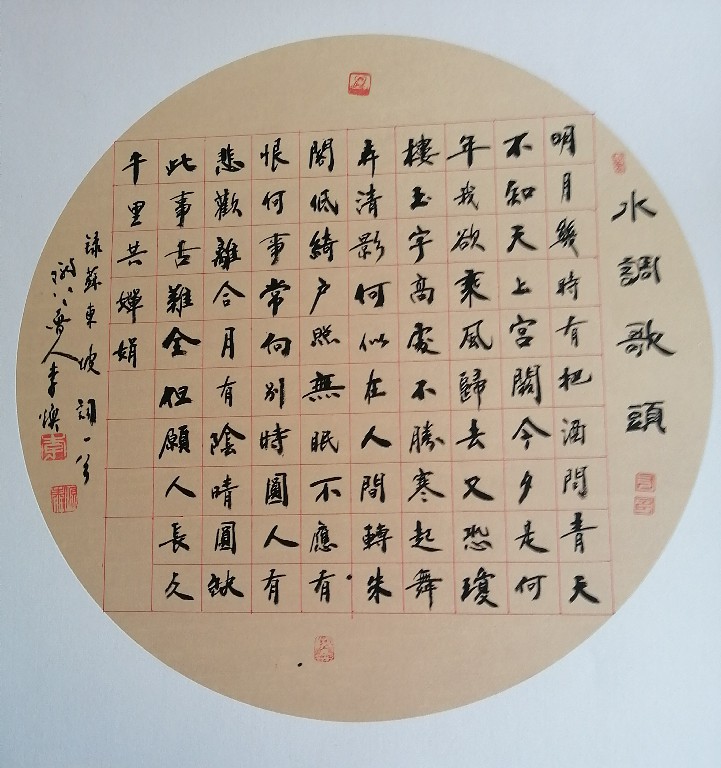 水調歌頭
明月幾時有把酒問青天
不知天上宮闕今夕是何
年我欲乘風歸去又恐瓊
樓玉宇高處不勝寒起舞
弄清影何似在人間轉朱
閣低綺户照無眠不應有
恨何事常向別時圓人有
悲歡離合月有陰晴圓缺
此事古難全但願人長久
千里共嬋娟
錄蘇東坡詞一首
人李煥